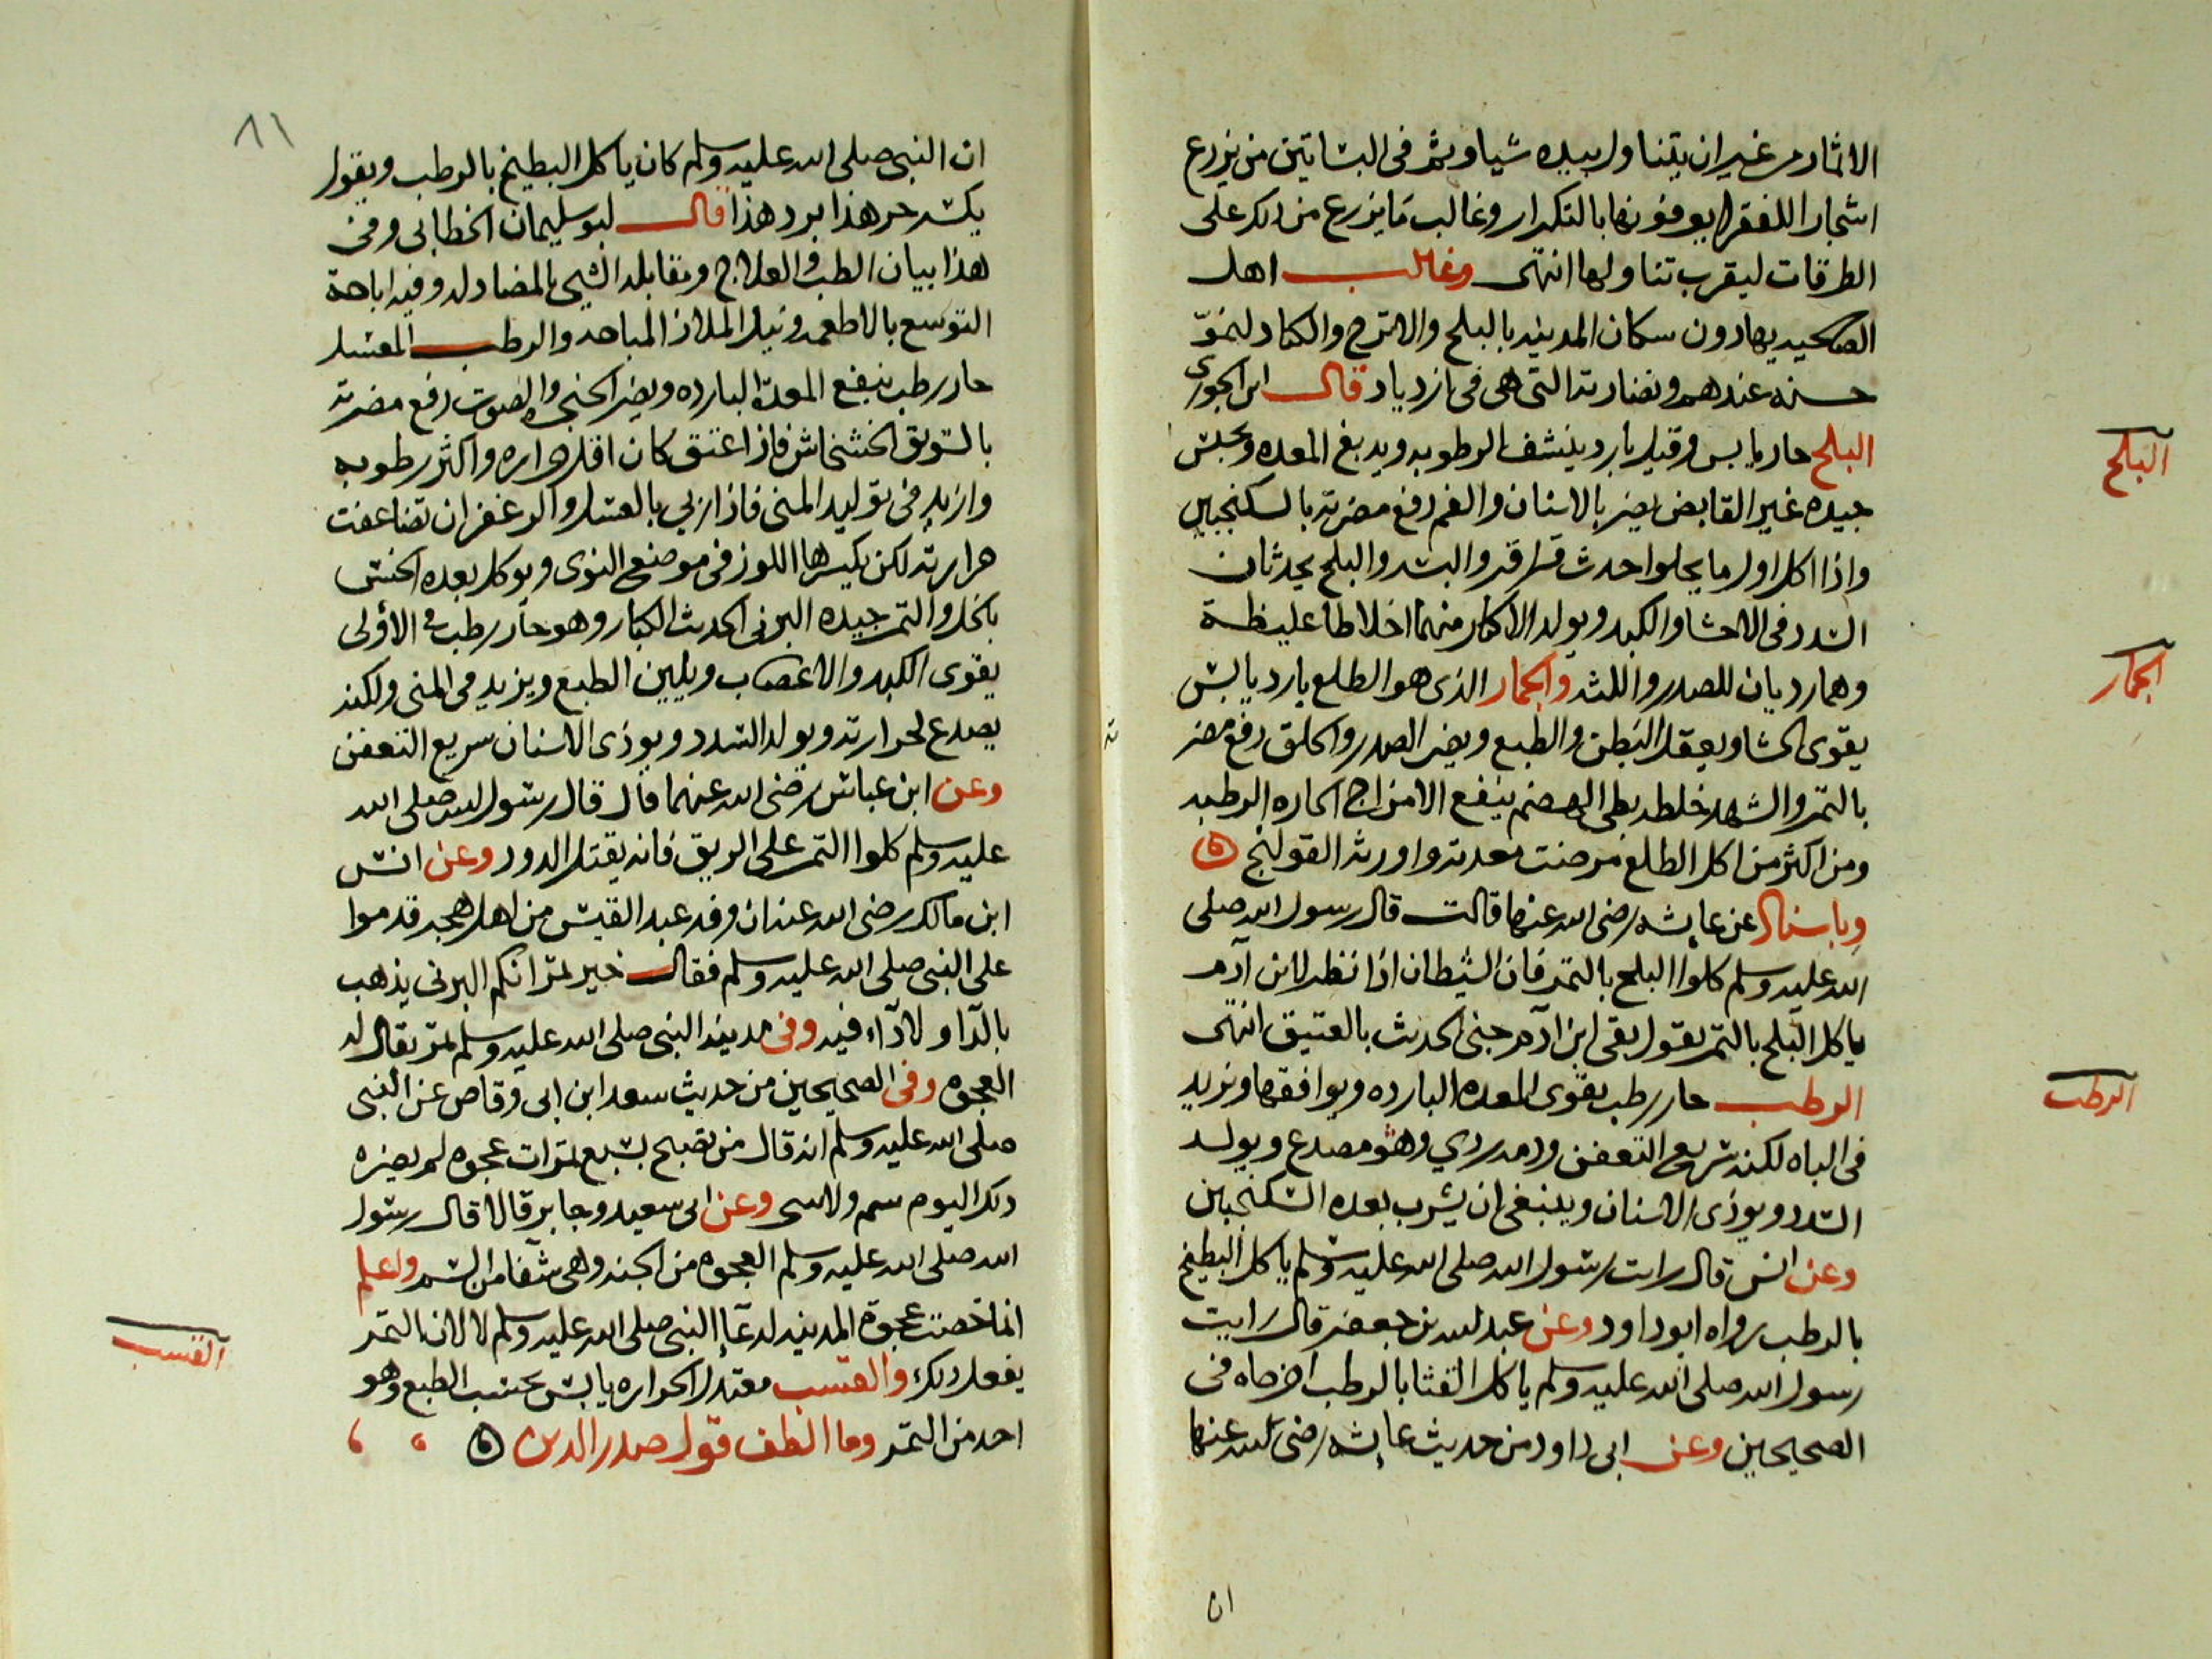 الاثمار من غير ان يتناول بيده شيا وثم فى البساتين من يزرع
اشجارا للفقرا يوفونها بالتكرار وغالب ما يزرع من ذلك على
الطرقات ليقرب تناولها انتهى وغالب اهل
الصعيد يهادون سكان المدينه بالبلح والاترج والكباد لنموّ
حسنه عندهم ونضارته التى هى فى ازدياد قال ابن الجوزى
البلح حار يابس وقيل بارد ينشف الرطوبه ويدبغ المعده وتحبس
جيده غير القابض يضر بالاسنان والفم دفع مضرته بالسكنجبين
واذا اكل اول ما يحلو احدث قراقر والبسر والبلح يحدثان
السدد فى الاحشا والكبد ويولد الاكثار منهما اخلاطا غليظة
وهما رديان للصدر واللثه والجمار الذى هو الطلع بارد يابس
يقوى الحشا ويعقل البطن والطبع ويضر الصدر والحلق دفع مضرته
بالتمر والشهد خلطه بطى الهضم ينفع الامزاج الحاره الرطبه
ومن اكثر من اكل الطلع مرضت معدته واورثه القولنج
وباسناد عن عايشه رضى الله عنها قالت قال رسول الله صلى
الله عليه وسلم كلوا البلح بالتمر فان الشيطان اذا نظر لابن آدم
ياكل البلح بالتمر يقول بقى ابن آدم حتى الحديث بالعتيق انتهى
الرطب حار رطب يقوى المعده البارده ويوافقها ويزيد
فى الباه لكنه سريع التعفن ودمه ردي وهو مصدع ويولد
السدد ويوذى الاسنان وينبغى ان يشرب بعده السكنجبين
وعن انس قال رايت رسول الله صلى الله عليه وسلم ياكل البطيخ
بالرطب رواه ابو داود وعن عبد الله بن جعفر قال رايت
رسول الله صلى الله عليه وسلم ياكل القثا بالرطب اخرجاه فى
الصحيحين وعن ابى داود من حديث عايشه رضى الله عنها
ان
البلح
الجمار
الرطب
٨١
ان النبى صلى الله عليه وسلم كان ياكل البطيخ بالرطب ويقول
يكسر حر هذا برد هذا قال ابو سليمان الخطابى وفى
هذا بيان الطب والعلاج ومقابله الشيى بالمضاد له وفيه اباحة
التوسع بالاطعمه ونيل الملاذ المباحه والرطب المعسل
حار رطب ينفع المعدة البارده ويضر الحنجره والصوت دفع مضرته
بالسويق الخشخاش فاذا اعتق كان اقل حراره واكثر رطوبه
وازيد فى توليد المنى فاذا ربي بالعسل والزعفران تضاعفت
حرارته لكن يكسرها اللوز فى موضع النوى ويوكل بعده الخس
بالخل والتمر جيده البرنى الحديث الكبار وهو حار رطب فى الأولى
يقوى الكبد والاعصاب ويلين الطبع ويزيد فى المنى ولكنه
يصدع لحرارته ويولد السدد ويوذى الاسنان سريع التعفن
وعن ابن عباس رضى الله عنهما قال قال رسول الله صلى الله
عليه وسلم كلوا التمر على الريق فانه يقتل الدود وعن انس
ابن مالك رضى الله عنه ان وفد عبد القيس من اهل هجر قدموا
على النبى صلى الله عليه وسلم فقال خير تمراتكم البرنى يذهب
بالدآ ولا دآء فيه وفى مدينه النبى صلى الله عليه وسلم تمر يقال له
العجوه وفى الصحيحين من حديث سعد ابن ابى وقاص عن النبى
صلى الله عليه وسلم انه قال من تصبح بسبع تمرات عجوه لم يضره
ذلك اليوم سم ولا سحر وعن ابى سعيد وجابر قالا قال رسول
الله صلى الله عليه وسلم العجوه من الجنه وهى شفا من السم واعلم
انما خصت عجوة المدينه لدعآء النبى صلى الله عليه وسلم لا لان التمر
يفعل ذلك والقسب معتدل الحراره يابس يحبس الطبع وهو
احد من التمر وما الطف قول صدر الدين
القسب